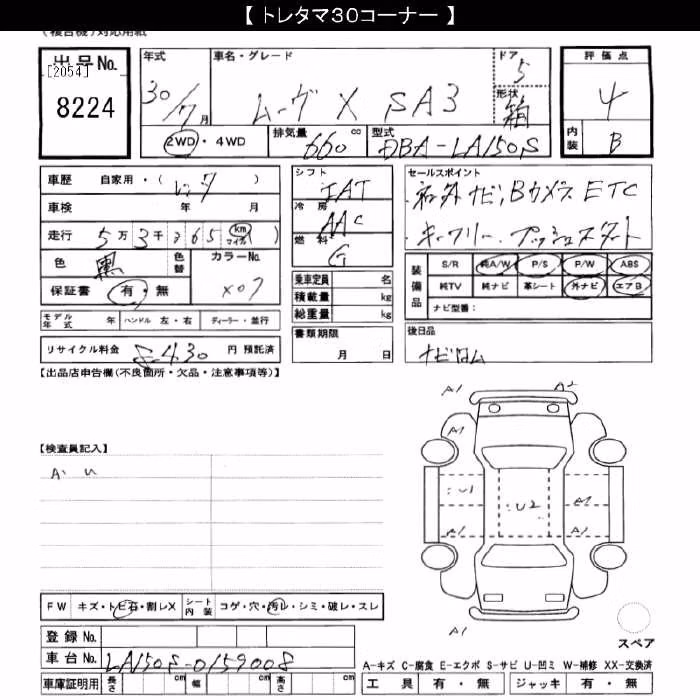 【 トレタマ30コーナー 】
(複合機)対応用紙
出品No.
[2054]
8224
年式
30/7月
車名・グレード
ムーヴ X SA3
ドア
5
形状
箱
評価点
4
内装
B
2WD・4WD
排気量
660 cc
型式
DBA-LA150S
車歴 自家用・( レンタ )
車検 年 月
走行 5万3千265 km マイル )
色 黒
色替
カラーNo.
X07
保証書 有・無
シフト
IAT
冷房
AAC
燃料
G
乗車定員 名
積載量 kg
総重量 kg
書類期限
月 日
セールスポイント
社外ナビ,Bカメラ ETC
キーフリー プッシュスタート
装備品
S/R 純A/W P/S P/W ABS
純TV 純ナビ 革シート 外ナビ エアB
ナビ型番:
モデル年式 年 ハンドル 左・右 ディーラー・並行
リサイクル料金 8430 円 預託済
後日品
ナビロム
【出品店申告欄(不良箇所・欠品・注意事項等)】
【検査員記入】
A・U
A1 A2
A1
U1 U2 A1
A1 A1
A1
スペア
FW キズ・トビ石・割レX
シート内装 コゲ・穴・汚レ・シミ・破レ・スレ
登録No.
車台No. LA150S-0159008
車庫証明用 長さ cm 幅 cm 高さ cm
A-キズ C-腐食 E-エクボ S-サビ U-凹ミ W-補修 XX-交換済
工具 有・無 ジャッキ 有・無